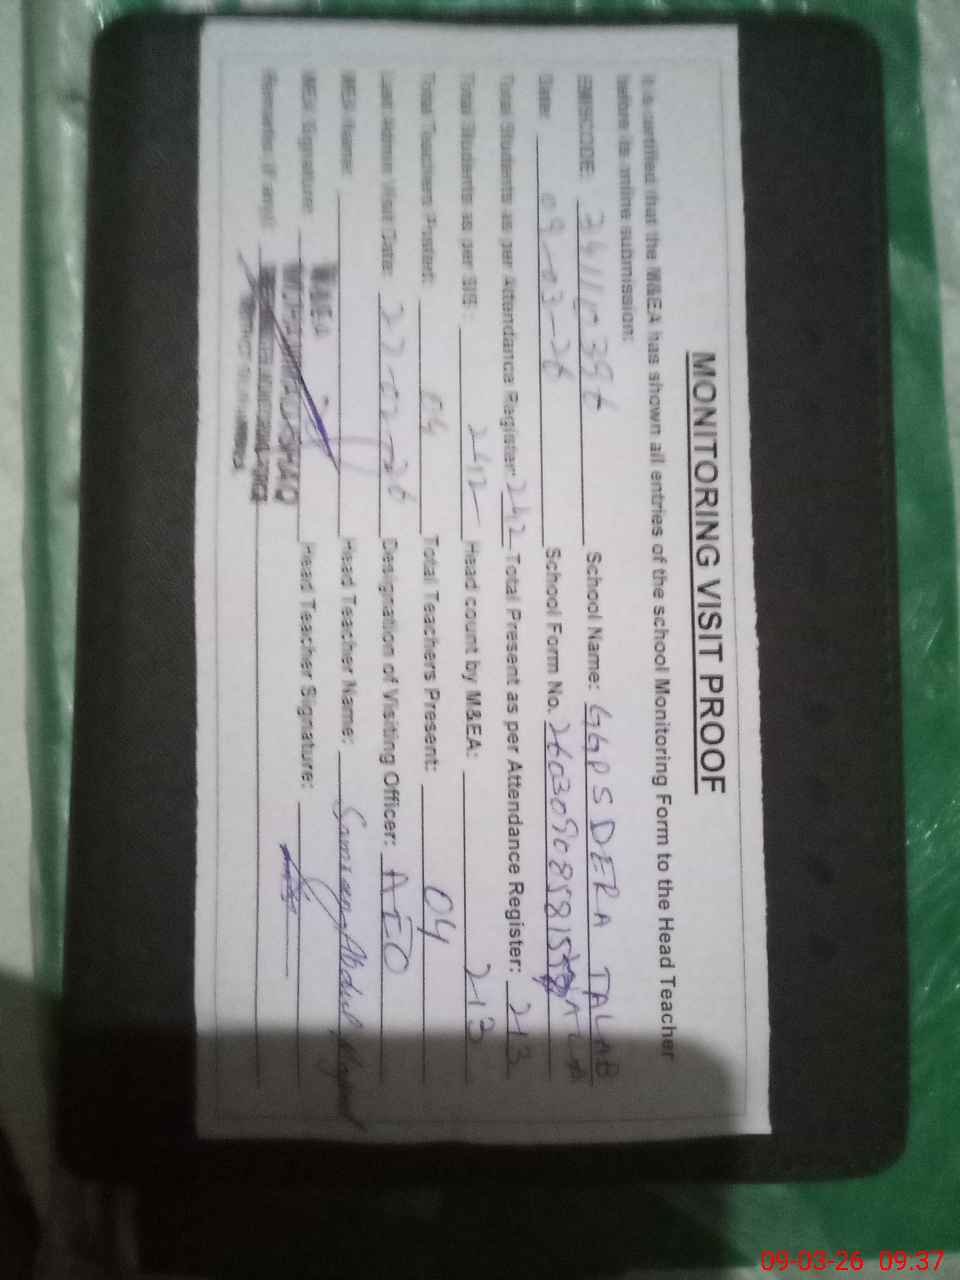 MONITORING VISIT PROOF
It is certified that the M&EA has shown all entries of the school Monitoring Form to the Head Teacher
before its online submission:
EMISCODE: School Name: GGPS DERA TALAB
Date: 09-03-26 School Form No. 260309085815
Total Students as per Attendance Register: 242 Total Present as per Attendance Register: 213
Total Students as per SIS: 242 Head count by M&EA: 213
Total Teachers Posted: 04 Total Teachers Present: 04
Last Admin Visit Date: 27-02-26 Designation of Visiting Officer: AEO
MEA Name: Head Teacher Name: Abdul
MEA Signature: Head Teacher Signature:
Remarks (if any):
M&EA
09-03-26 09.37